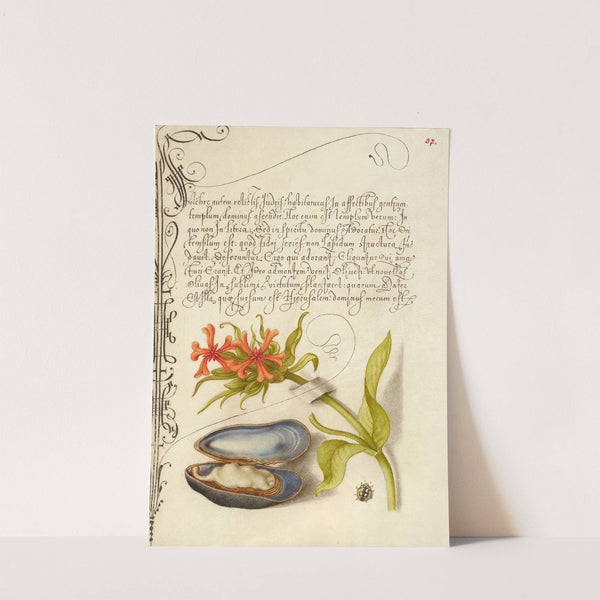 37.
autem relictis Judeis habitaturus In affectibus gentium
templum dominus ascendit. Hoc enim est templum verum: In
quo non In litera, Sed in spiritu dominus Hoc Dei
templum est: quod fidei series non lapidum structura Fu,
dauit. Deseruntur Ergo qui Eliguntur qui ama,
turi Erant. Et Ideo ad montem venit Oliueti: vt nouellas
Oliuas In sublimi virtutum plantaret: quarum Mater
Illa, quæ sursum est Hierusalem. dominus mecum est.